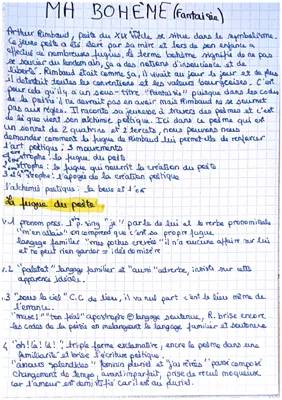 MA BOHEME (Fantaisie)
Arthur Rimbaud, poète du XIX siècle se situe dans le symbolisme.
Ce jeune poète a été écrit par sa mère et lors de son enfance a
effectué de nombreuses fugues, le terme bohème signifie de ne pas
se soucier du lendemain, ça a des notions d'insouciance et de
liberté. Rimbaud était comme ça, il vivait au jour le jour et de plus
il détestait toutes les conventions et les valeurs bourgeoises. C'est
pour cela qu'il y a un sous-titre "Fantaisie" puisque dans les codes
de la poésie il ne devrait pas en avoir mais Rimbaud ne se soumet
pas aux règles. Il raconte sa jeunesse à travers des poèmes et c'est
de là que vient son alchimie poétique. Ici dans ce poème qui est
un sonnet de 2 quatrains et 2 tercets, nous pouvons nous
demander comment la fugue de Rimbaud lui permet-ils de renforcer
l'art poétique ; 3 mouvements
strophe : la fugue du poète
strophe : la fugue qui nourrit la création du poète
3 et 4 strophe : l'apogée de la création poétique
l'alchimie poétique : la boue et l'or
La fugue du poète
v.1 prenom pers. 1ère p. sing "je" parle de lui et le verbe pronominale
"m'en allais" on comprend que c'est sa propre fugue
langage familier "mes poches crevées" il n'a aucune affaire sur lui
et ne peut rien garder → idée de misère
v.2 "paletot" langage familier et "aussi" adverbe, insiste sur cette
apparence idéale.
.3 "sous le ciel" C.C de lieu, il va nul part c'est le lieu même de
l'errance.
"muse !" "ton féal" apostrophe langage soutenue, R. brise encore
les codes de la poésie en melangeant le langage familier et soutenue
.4 "oh ! là ! là !", triple forme exclamative, encre le poème dans une
familiarité et brise l'écriture poétique.
"amours splendides" féminin pluriel et "j'ai rêvées" passé composé
Changement de temps, avant imparfait, prise de recul moqueuse
car l'amour est démistifié car il est au pluriel.